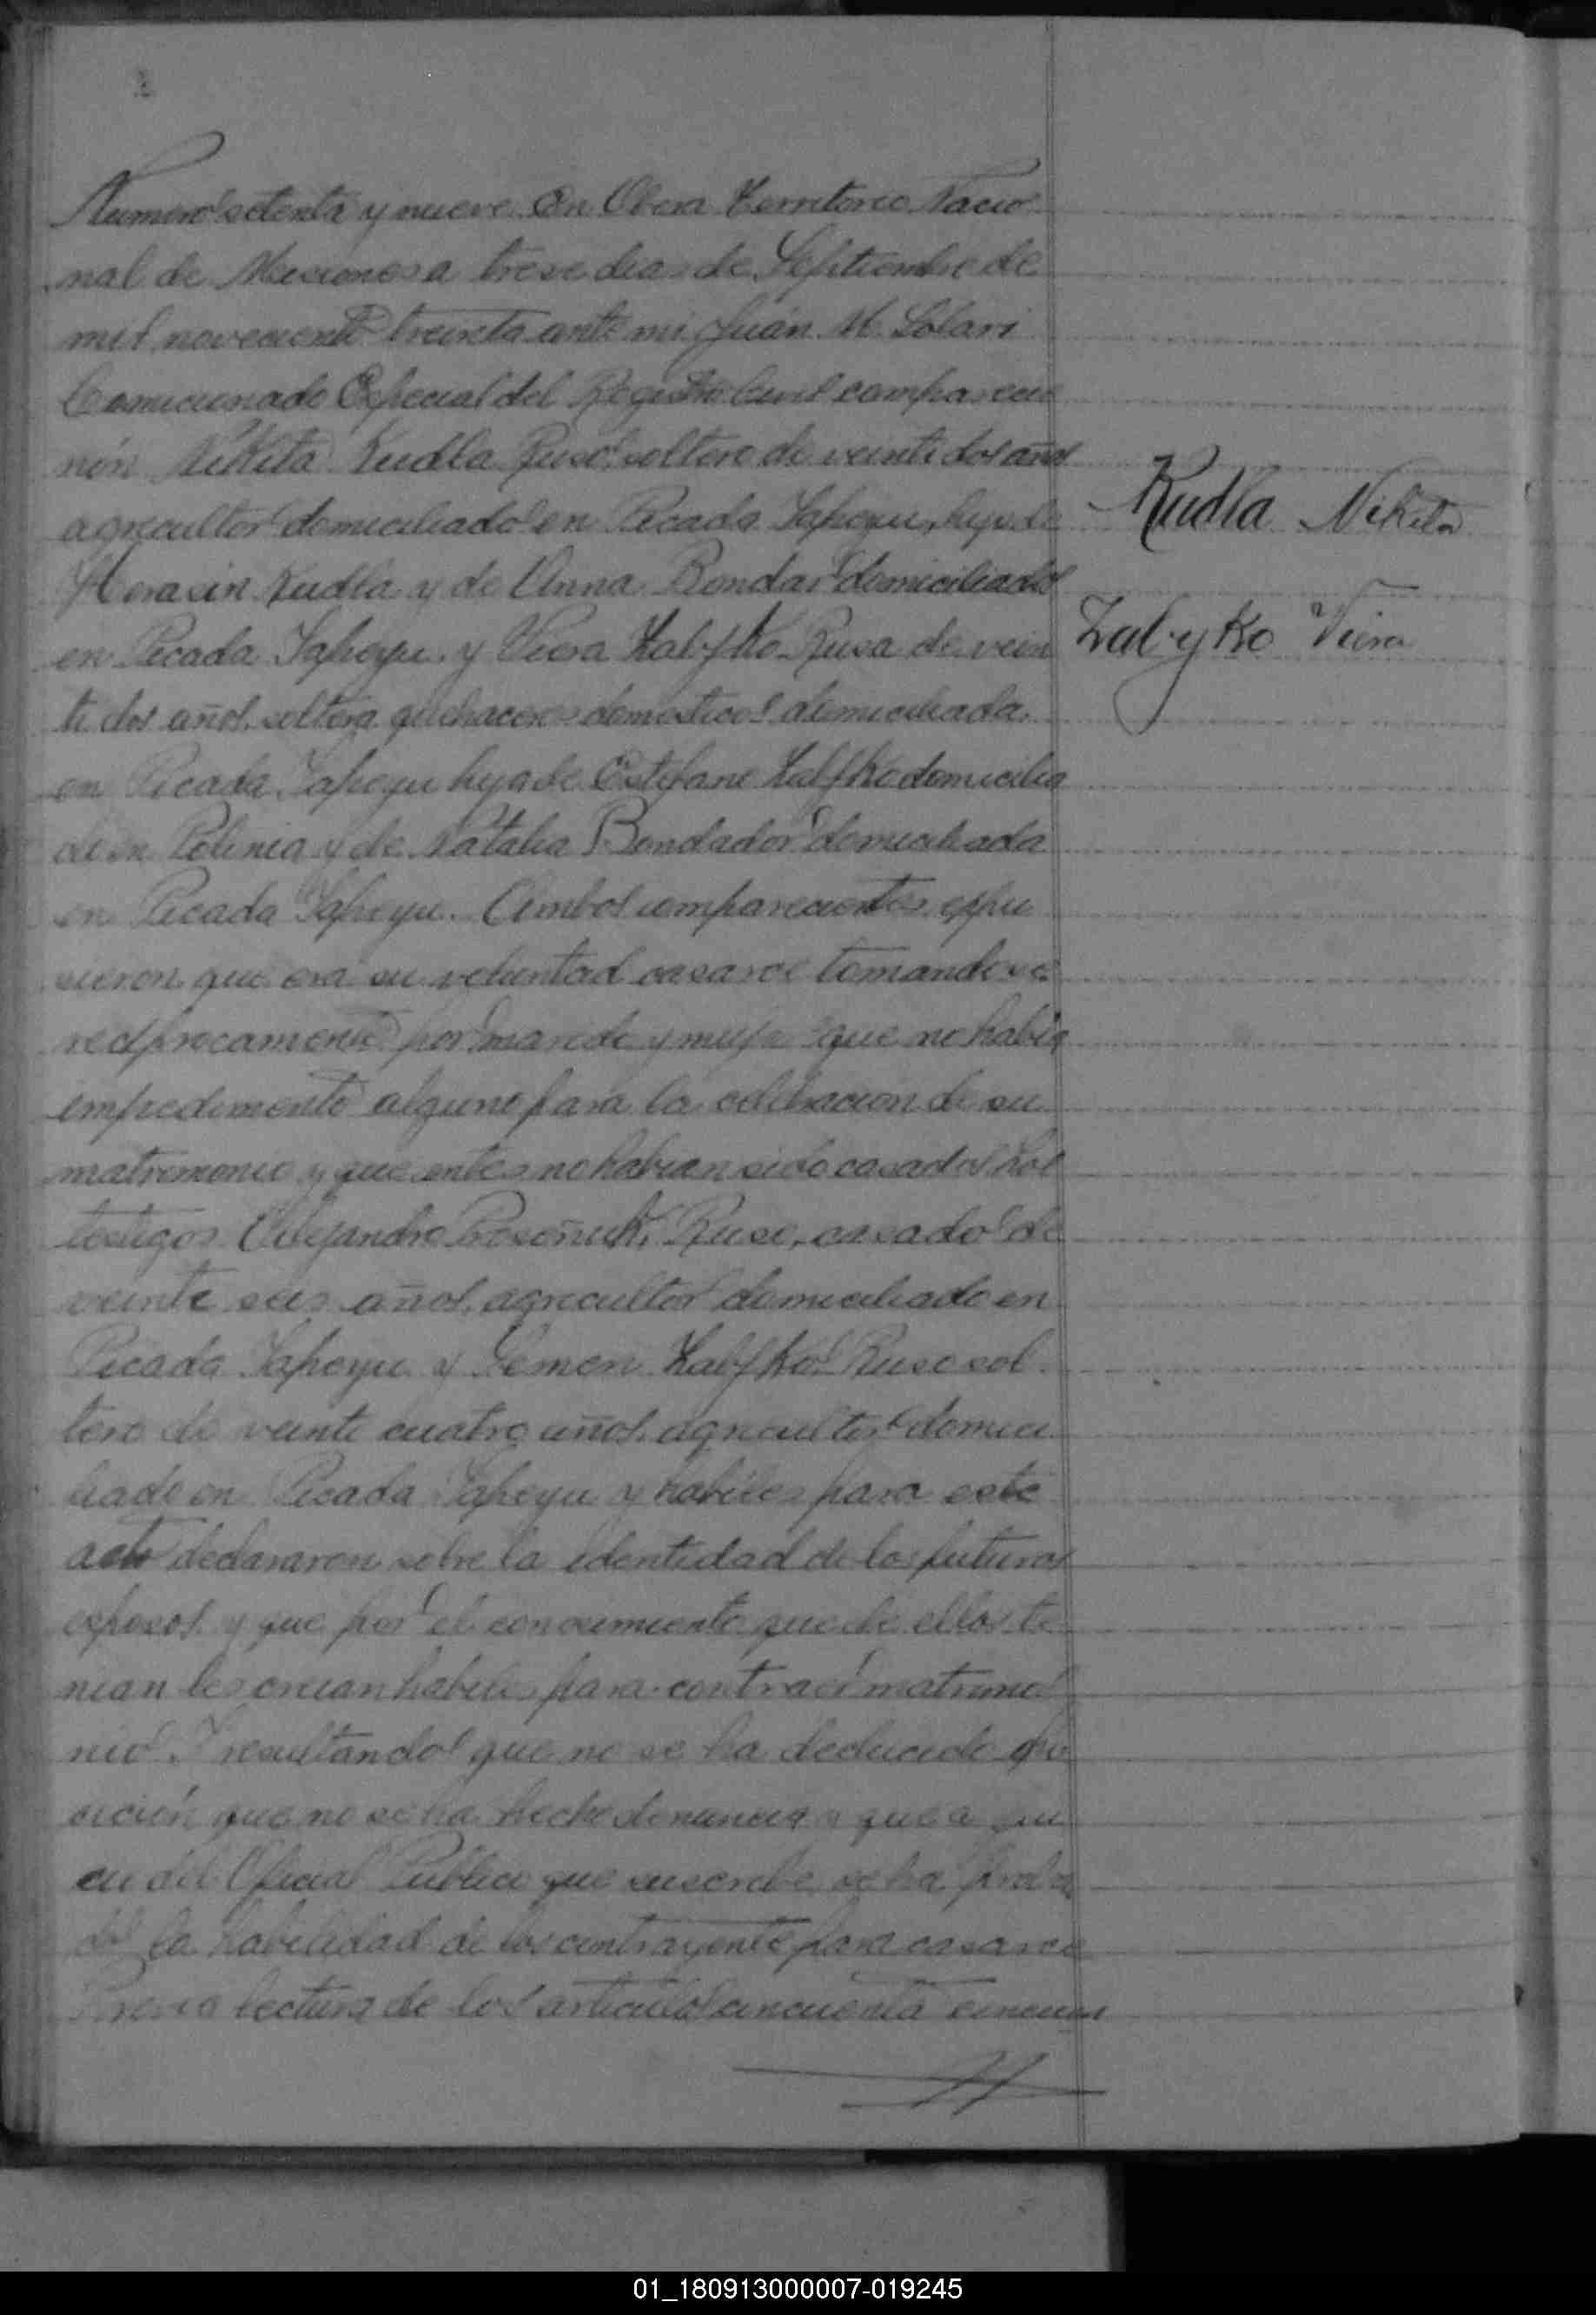 Numero setenta y nueve. En Obera Territorio Nacio
nal de Misiones a trese dias de Septiembre de
mil novecientos treinta ante mi Juan M. Solari
Comicionado Especial del Registro Civil comparecie
rón Nikita Kudla Ruso soltero de veinti dos años
agricultor domiciliado en Picada Yapeyu, hijo de
Herasin Kudla y de Anna Bondar domiciliados
en Picada Yapeyu. y Viera Zabyko Rusa de vein
ti dos años. soltera quehaceres domesticos domiciliada.
en Picada Yapeyu hija de Estefane Zabyko domicilia
do en Polinia y de Natalia Bondador domiciliada
en Picada Yapeyu. Ambos comparecientes espu
sieron que era su voluntad casarce tomandose
reciprocamente por marido y mujer que no habia
impedimento alguno para la celebracion de su
matrimonio y que antes no habian sido casados Los
testigos Alejandro Ruso, casado de
veinte seis años, agricultor domiciliado en
Picada Yapeyu y Semen Zabyko Ruso sol
tero de veinte cuatro años. agricultor domici
liado en Picada Yapeyu y habiles para este
acto declararon sobre la identidad de los futuros
esposos y que por el conocimiento que de ellos te
nian les creian habiles para contraer matrimo
nio. Y resultando que no se ha deducido opo
sición que no se ha hecho denuncia y que a jui
cio del Oficial Publico que suscribe se ha proba
do la habilidad de los contrayente para casarce
Previa lectura de los articulos cincuenta cincuen
Kudla Nikita
Zabyko Viera
01_180913000007-019245